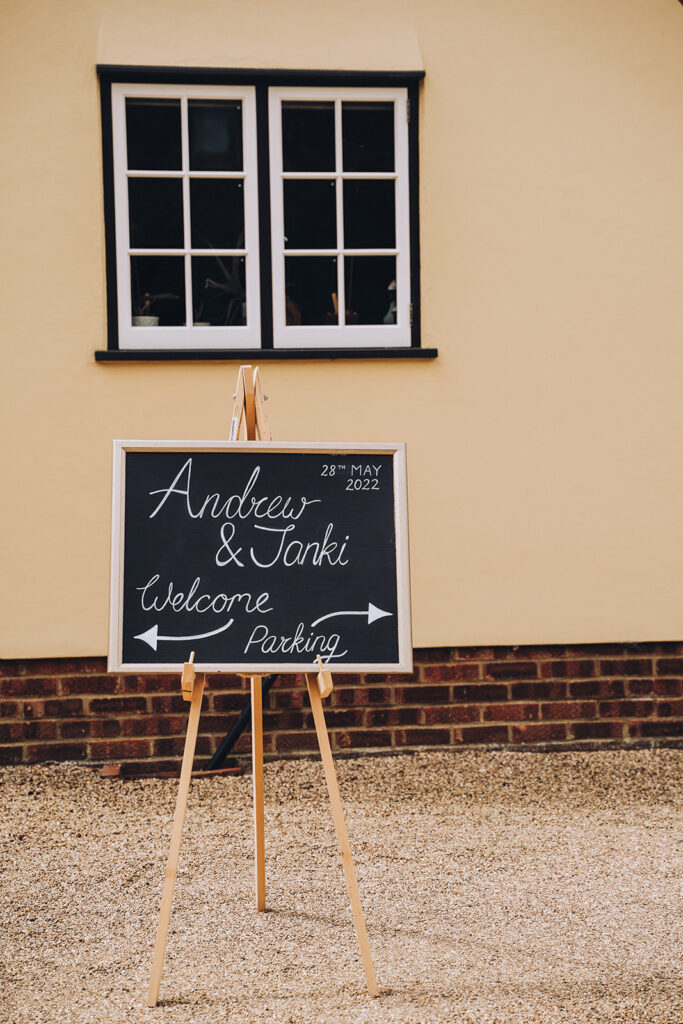 28TH MAY
2022
Andrew
& Janki
Welcome
Parking